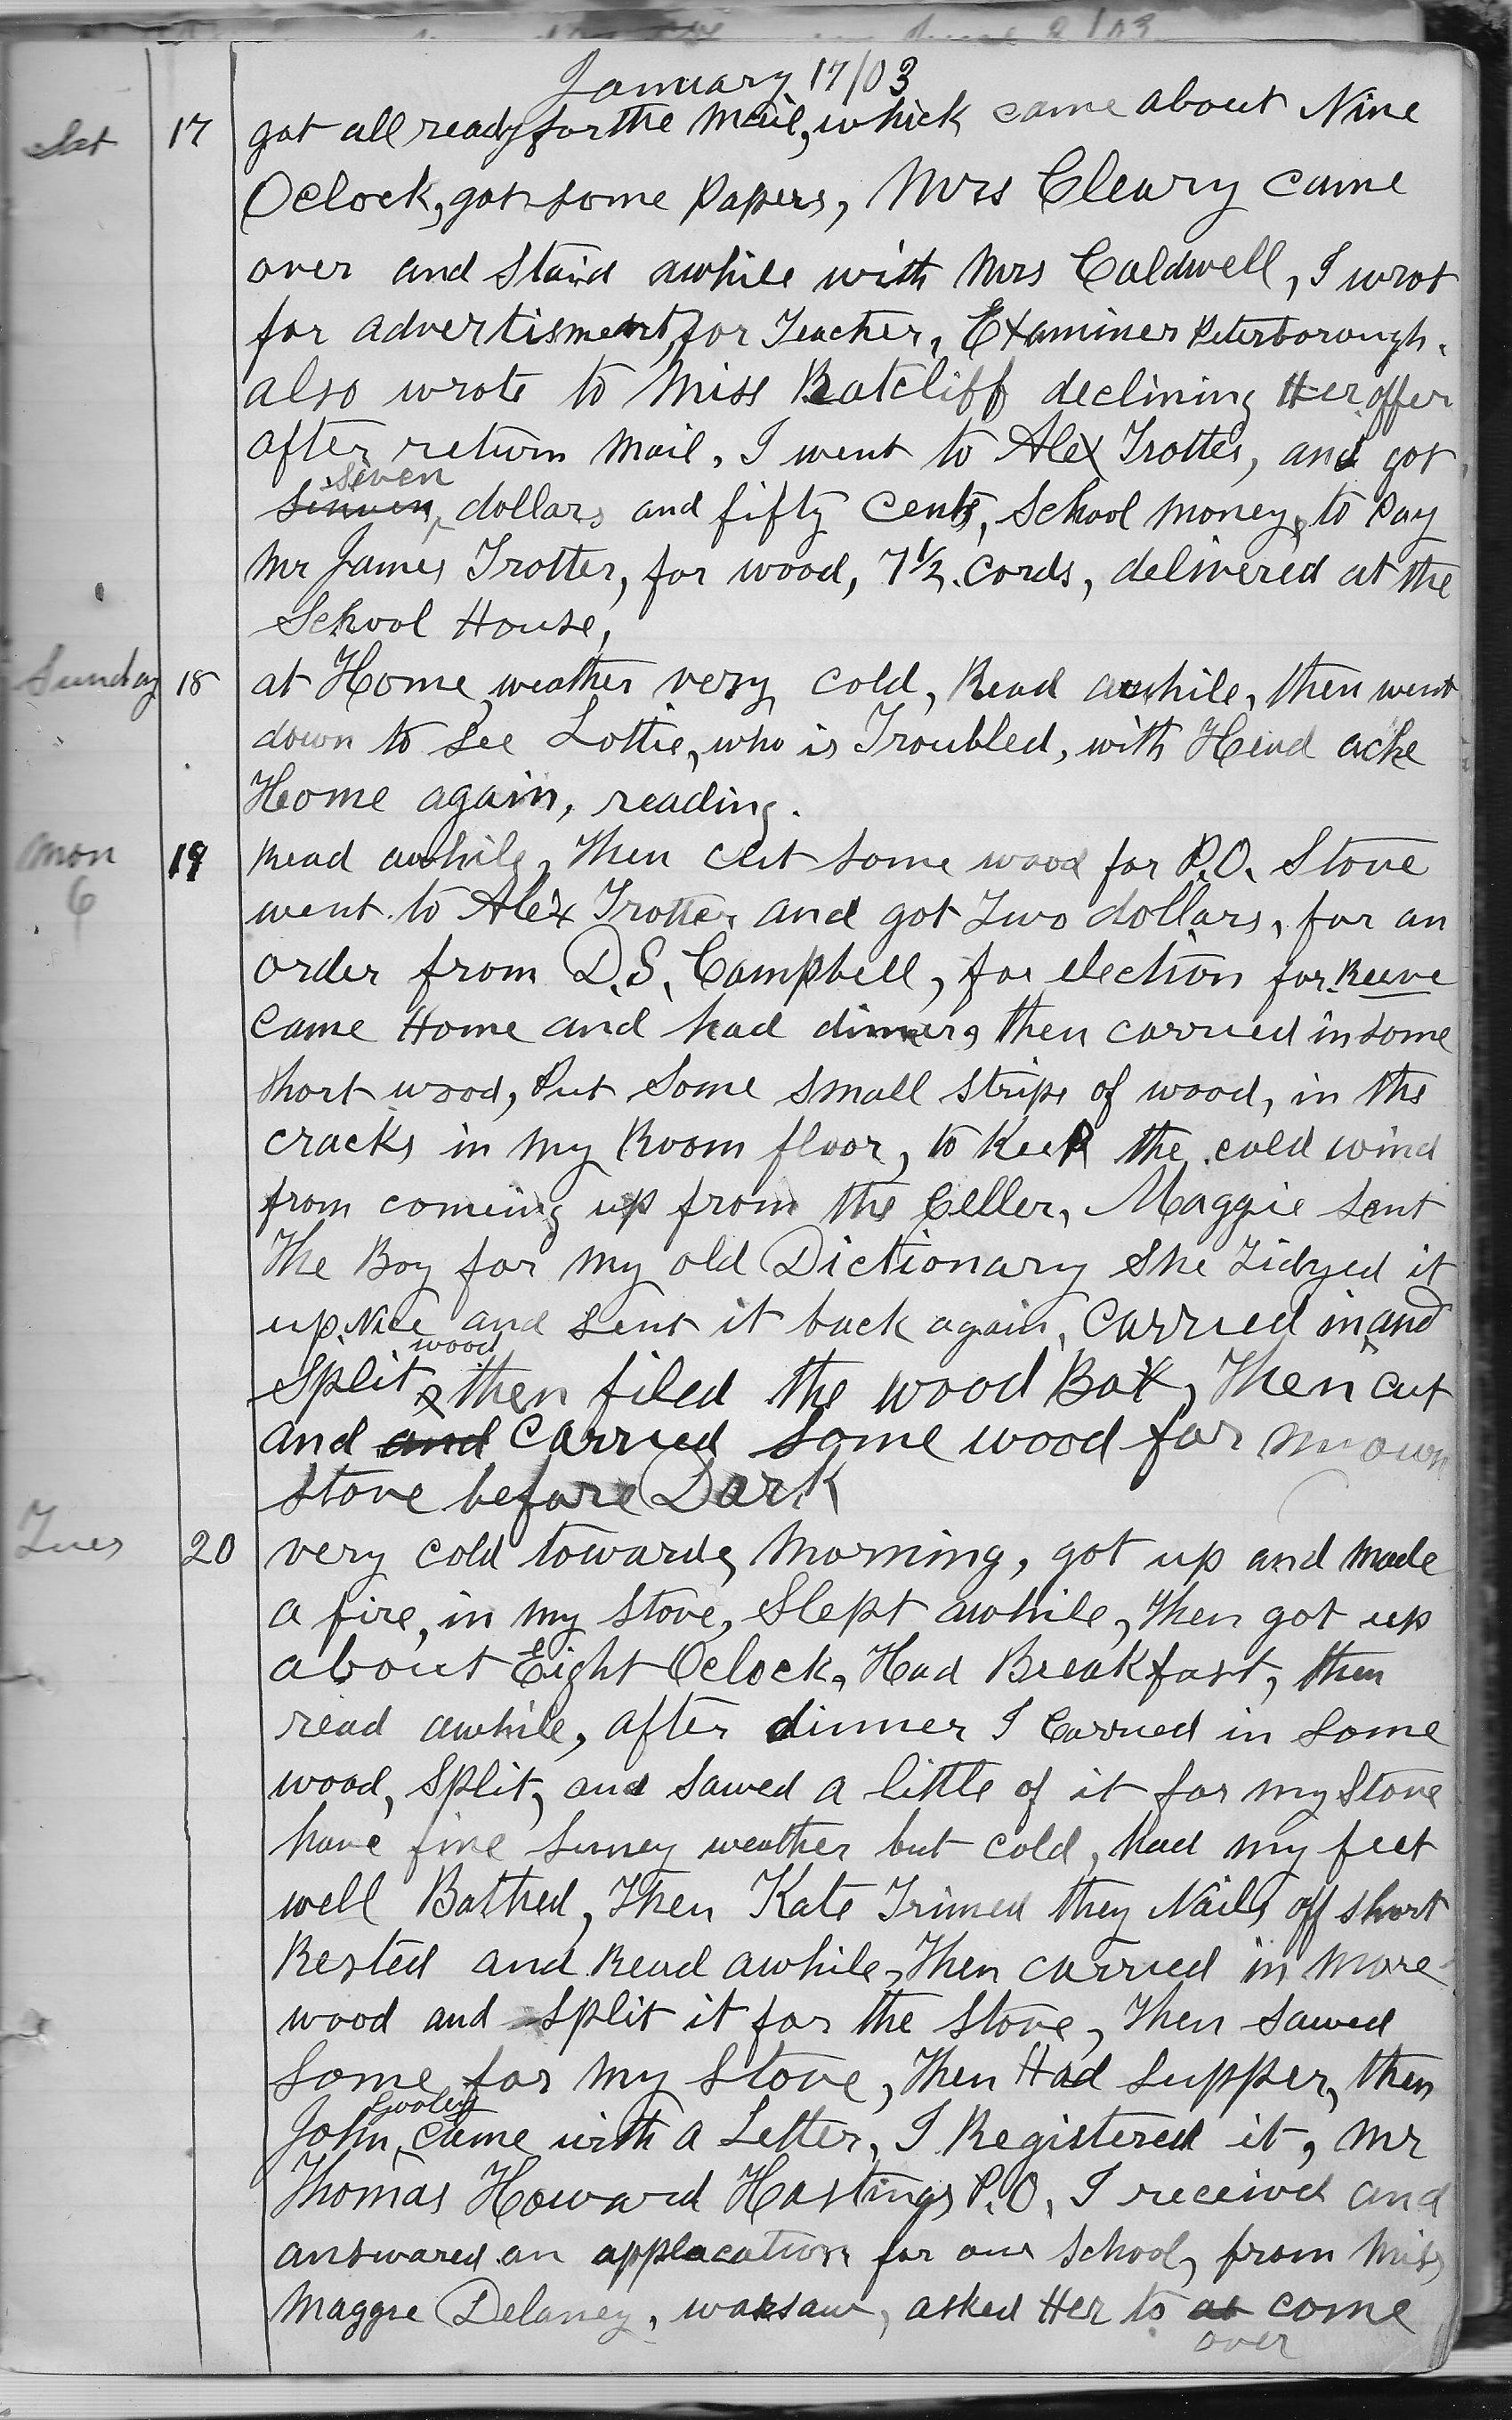 January 17/03
Sat 17 got all ready for the Mail, which came about Nine
Oclock, got some Papers, Mrs Cleary came
over and Staid awhile with Mrs Caldwell, I wrot
for advertisment, for Teacher, Examiner Peterborough.
also wrote to Miss Ratcliff declining Her offer
after return Mail, I went to Alex Trotter, and got
seven
dollars and fifty Cents, School Money, to Pay
Mr James Trotter, for wood, 7 1/2 Cords, delivered at the
School House,
Sunday 18 at Home, weather very cold, Read awhile, then went
down to See Lottie, who is Troubled, with Head ache
Home again, reading.
Mon 19 Read awhile, Then cut some wood for P.O. Stove
6 went to Alex Trotter and got Two dollars, for an
order from D.S. Campbell, for election for Reeve
Came Home and had dinner, then carried in some
Short wood, Put Some Small strips of wood, in the
cracks in My Room floor, to Keep the cold wind
from coming up from the Celler, Maggie sent
The Boy for My old Dictionary She Tidyed it
up Nice and sent it back again, Carried in and
wood
Split & then filed the wood Box, Then cut
and and Carried Some wood for my own
Stove before Dark
Tues 20 very cold towards Morning, got up and Made
a fire, in My Stove, Slept awhile, Then got up
about Eight Oclock, Had Breakfast, then
read awhile, after dinner I Carried in Some
wood, Split, and Sawed a little of it for My Stove
have fine Suney weather but cold, had my feet
well Bathed, Then Kate Trimed they Nails off short
Rested and Read awhile, Then carried in More
wood and split it for the Stove, Then Sawed
Some for My Stove, Then Had Supper, then
John came with a Letter, I Registered it, Mr
Thomas Howard Hastings P.O. I receivd and
answared an applacation for our School, from Miss
Maggie Delaney, warsaw, asked Her to at come
over